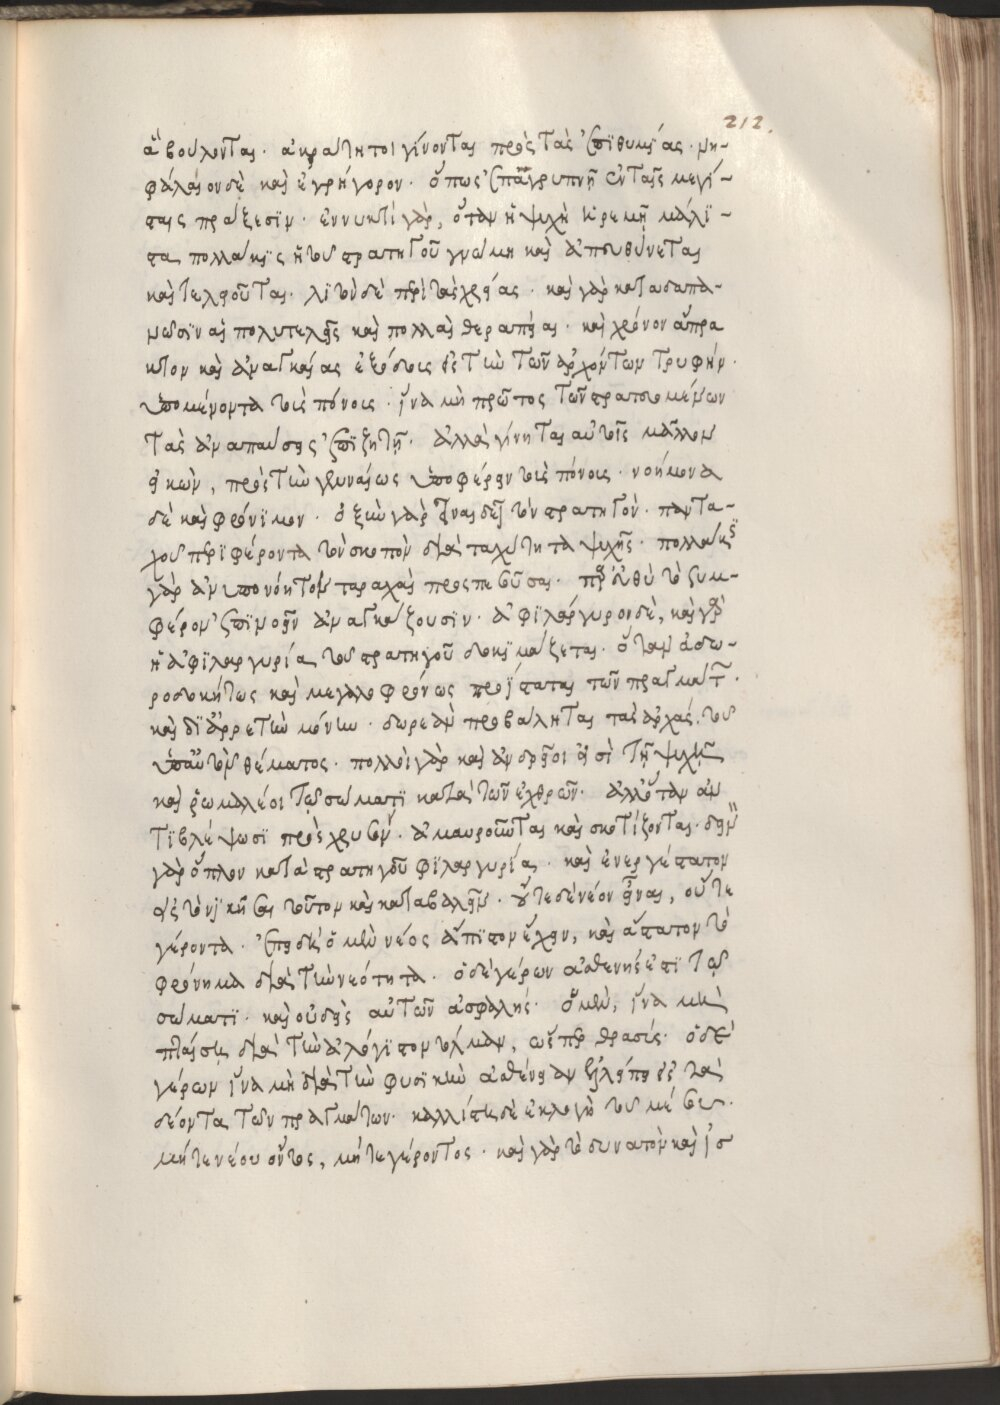 212.
ἃ βούλονται· ἀκράτητοι γίνονται πρὸς τὰς ἐπιθυμίας· νη-
φάλαιον δὲ καὶ ἐγρήγορον· ὅπως ἐπαγρυπνῇ ἐν ταῖς μεγί-
σταις πράξεσιν· ἐν νυκτὶ γὰρ, ὅταν ἡ ψυχὴ ἠρεμῇ μάλι-
στα πολλάκις ἡ τοῦ στρατηγοῦ γνώμη καὶ ἀπευθύνεται
καὶ τελειοῦται· λιτὸν δὲ περὶ τὰς χρείας· καὶ γὰρ καταδαπα-
νῶσιν αἱ πολυτελεῖς καὶ πολλαὶ θεραπεῖαι· καὶ χρόνον ἄπρα
κτον καὶ ἀναγκαίας ἐξόδους εἰς τὴν τῶν ἀρχόντων τρυφήν·
ὑπομένοντα τοὺς πόνους· ἵνα μὴ πρῶτος τῶν στρατευομένων
τὰς ἀναπαύσεις ἐπιζητῇ· ἀλλὰ γίνηται αὐτοῖς μᾶλλον
εἰκὼν, πρὸς τὴν γενναίως ὑποφέρειν τοὺς πόνους· νοήμονα
δὲ καὶ φρόνιμον· ὀξὺν γὰρ εἶναι δεῖ τὸν στρατηγόν· παντα-
χοῦ περιφέροντα τὸν σκοπὸν διὰ ταχύτητα ψυχῆς· πολλάκις
γὰρ ἀνυπονόητοι ταραχαὶ προσπεσοῦσαι· παρευθὺ τὸ συμ-
φέρον ἐπινοεῖν ἀναγκάζουσιν· ἀφιλάργυρον δὲ, καὶ γὰρ
ἡ ἀφιλαργυρία τοῦ στρατηγοῦ δοκιμάζεται· ὅταν ἀδω-
ροδοκήτως καὶ μεγαλοφρόνως προΐσταται τῶν πραγμάτων·
καὶ δι' ἀρετὴν μόνην· δωρεὰν προβάληται τὰς ἀρχὰς τοῦ
ὑπ' αὐτὸν θέματος· πολλοὶ γὰρ καὶ ἀνδρεῖοι εἰσὶ τῇ ψυχῇ
καὶ ῥωμαλέοι τῷ σώματι κατὰ τῶν ἐχθρῶν· ἀλλ' ὅταν ἀν
τιβλέψωσι πρὸς χρυσὸν· ἀμαυροῦνται καὶ σκοτίζονται· δεινὸν
γὰρ ὅπλον κατὰ στρατηγοῦ φιλαργυρία· καὶ ἐνεργέστατον
εἰς τὸ νικῆσαι τοῦτον καὶ καταβαλεῖν· οὔτε δὲ νέον εἶναι, οὔτε
γέροντα· ἐπειδὴ ὁ μὲν νέος ἄπιστον ἔχει, καὶ ἄστατον τὸ
φρόνημα διὰ τὴν νεότητα· ὁ δὲ γέρων ἀσθενής ἐστι τῷ
σώματι· καὶ οὐδεὶς αὐτῶν ἀσφαλής· ὁ μὲν, ἵνα μὴ
πταίσῃ διὰ τὴν ἀλόγιστον τόλμαν, ὡς περ θρασύς· ὁ δὲ
γέρων ἵνα μὴ διὰ τὴν φυσικὴν ἀσθένειαν ἐλλείπῃ εἰς τὰ
δέοντα τῶν πραγμάτων· καλλίστη δὲ ἐκλογὴ τοῦ μέσου·
μήτε νέου ὄντος, μήτε γέροντος· καὶ γὰρ τὸ δυνατὸν καὶ ἰσ